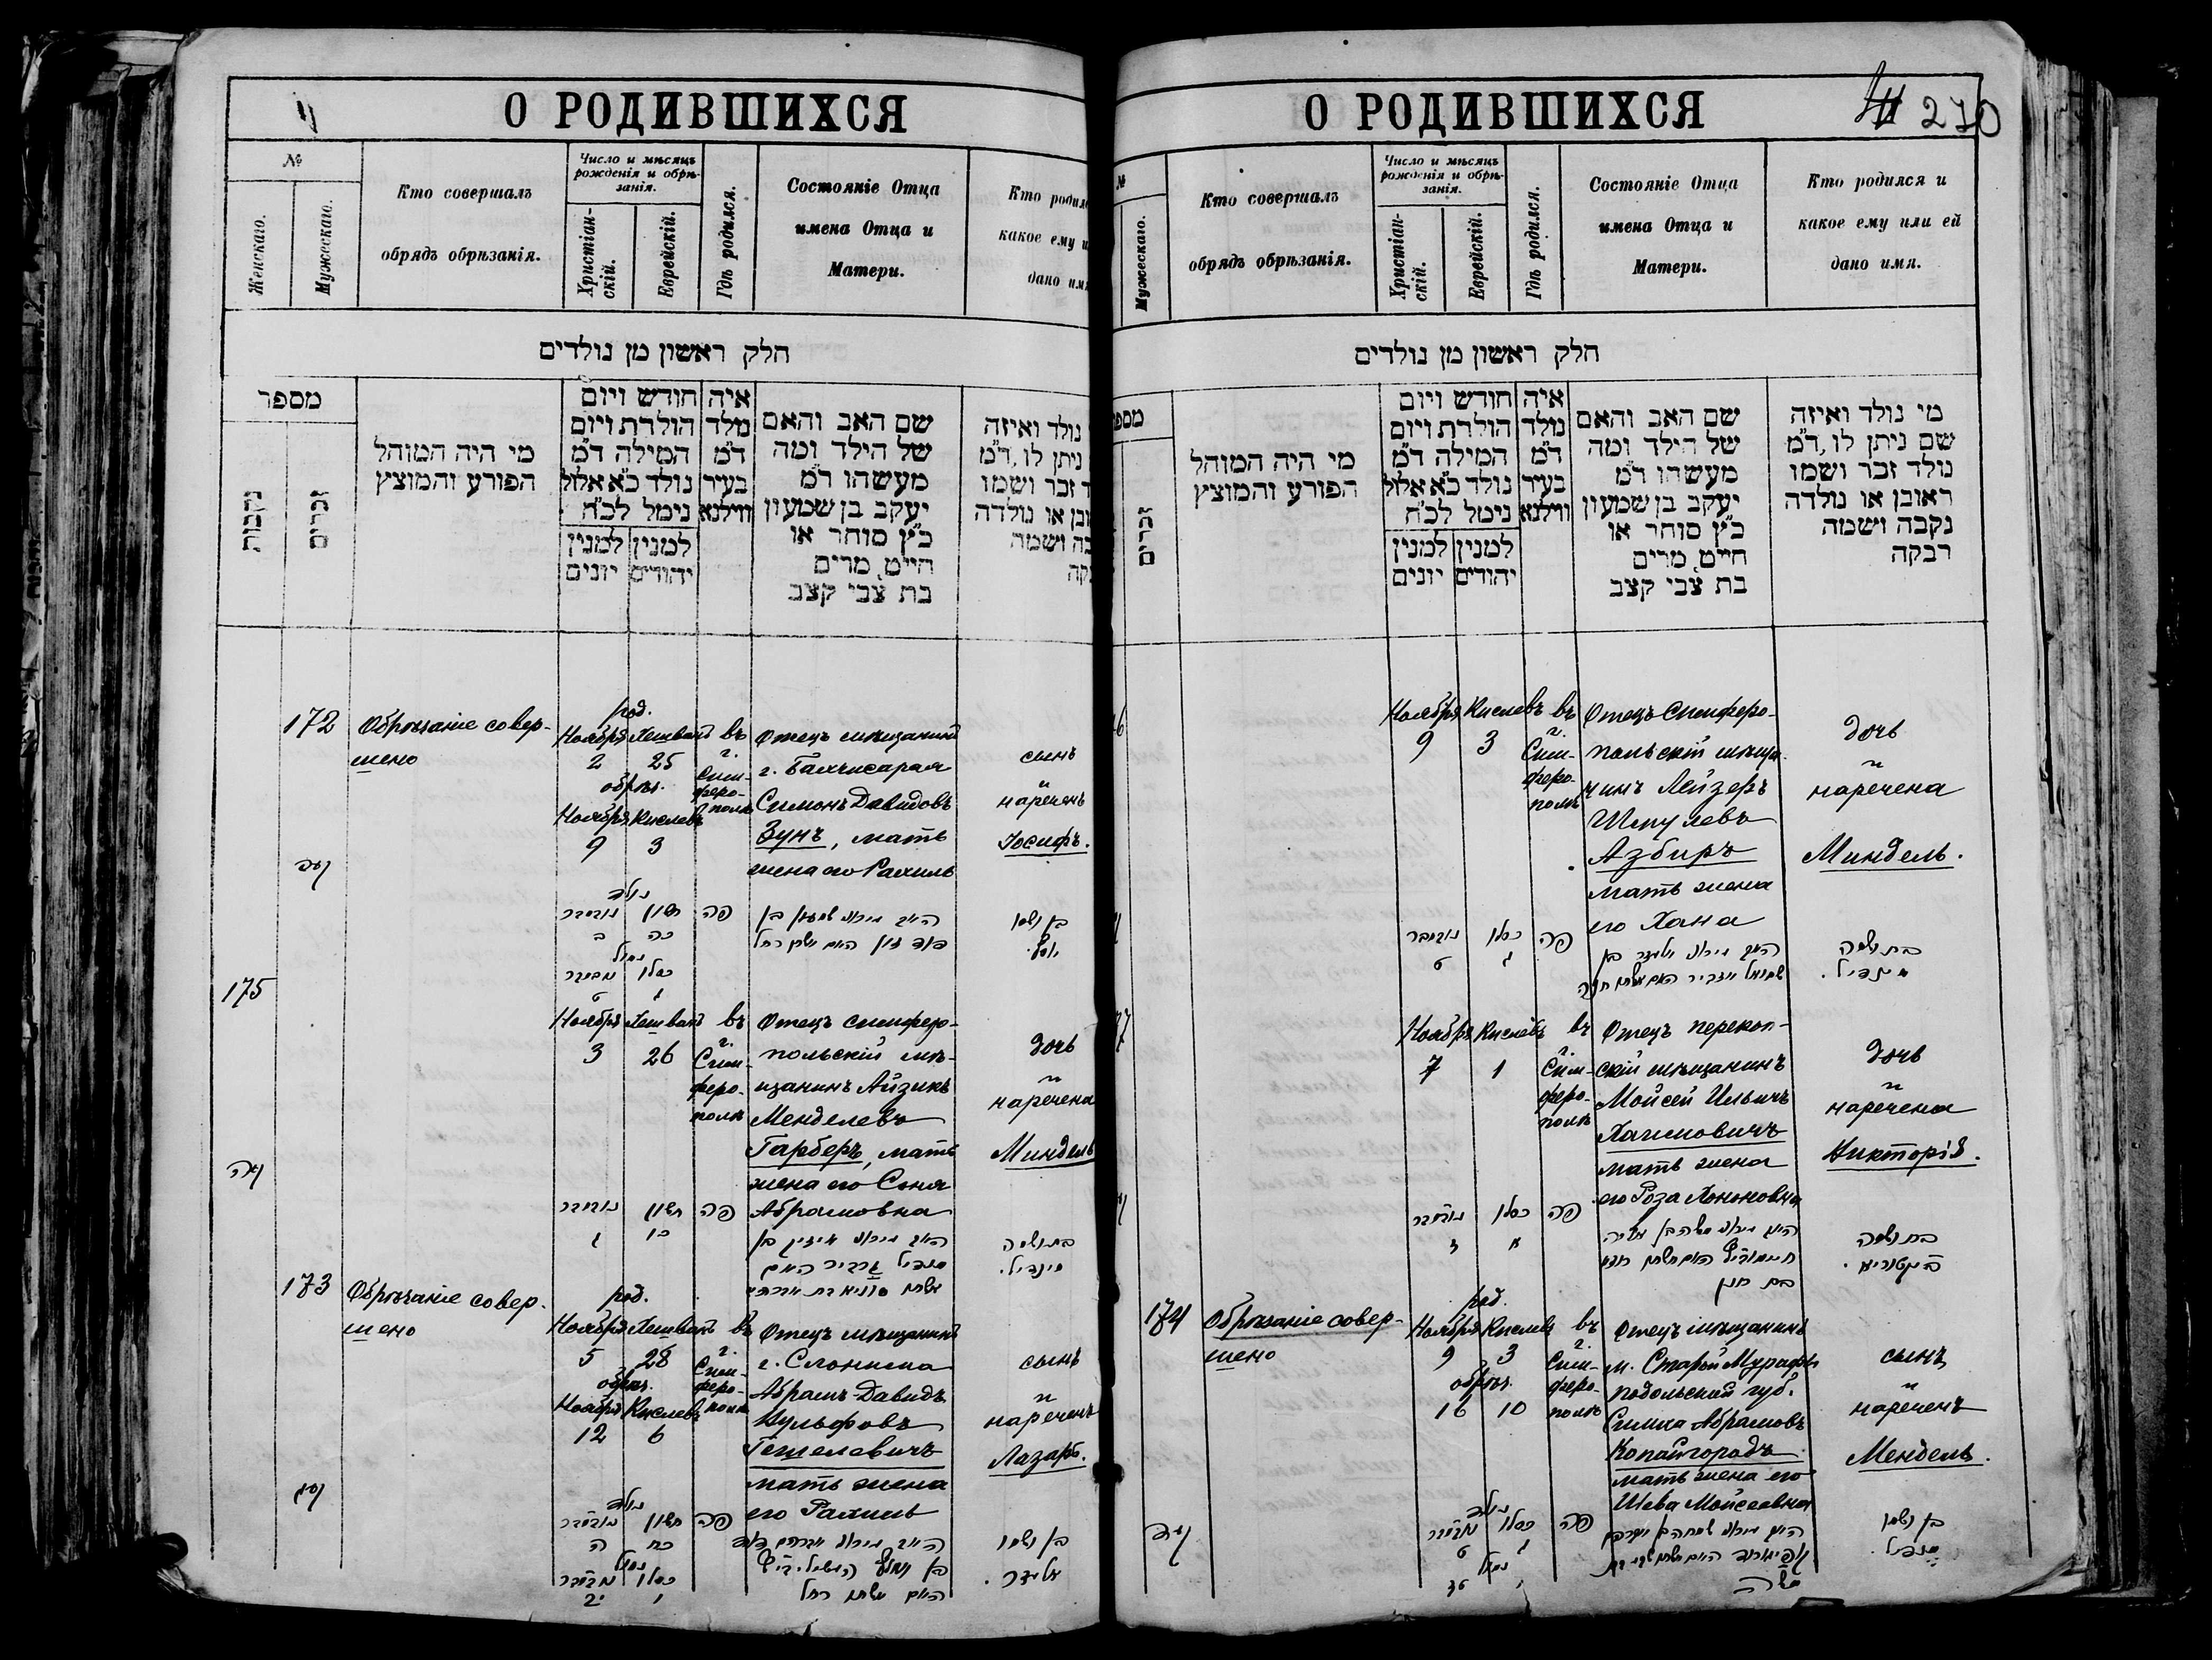 О РОДИВШИХСЯ
№
Женскаго.
Мужескаго.
Кто совершалъ
обрядъ обрѣзанія.
Число и мѣсяцъ
рожденія и обрѣ-
занія.
Христіан-
скій.
Еврейскій.
Гдѣ родился.
Состояніе Отца
имена Отца и
Матери.
Кто родил
какое ему и
дано имя
חלק ראשון מן נולדים
מספר
נקבות
זכרים
מי היה המוהל
הפורע והמוציץ
חודש ויום
הולדת ויום
המילה ד״מ
נולד כ״א אלול
נימל לכ״ח
למנין יהודים
למנין יונים
איה
מלד
ד״מ
בעיר
ווילנא
שם האב והאם
של הילד ומה
מעשהו ד״מ
יעקב בן שמעון
כ״ץ סוחר או
חייט, מרים
בת צבי קצב
נולד ואיזה
ניתן לו, ד״מ
ד זכר ושמו
ובן או נולדה
בה ושמה
בקה
172
Обрѣзаніе совер-
шено
род.
Ноября Хешванъ
2 25
обрѣз.
Ноября Кислевъ
9 3
въ
г.
Сим-
феро-
полѣ
Отецъ мѣщанинъ
г. Бахчисарая
Симонъ Давидовъ
Зунъ, мать
жена его Рахиль
сынъ
и
нареченъ
Іосифъ.
נולד
חשון נובמבר
כה ב
נימול
כסלו נובמבר
ג ט
פה
בן ושמו
יוסף.
175
Ноября Хешванъ
3 26
въ
г.
Сим-
феро-
полѣ
Отецъ симферо-
польскій мѣ-
щанинъ Айзикъ
Менделевъ
Гарберъ, мать
жена его Соня
Абрамовна
дочь
и
наречена
Миндель
חשון נובמבר
כו ג
פה
בת ושמה
מינדיל.
173
Обрѣзаніе совер-
шено
род.
Ноября Хешванъ
5 28
обрѣз.
Ноября Кислевъ
12 6
въ
г.
Сим-
феро-
полѣ
Отецъ мѣщанинъ
г. Слонима
Абрамъ-Давидъ
Вульфовъ
Гешелевичъ
мать жена
его Рахиль
сынъ
и
нареченъ
Лазарь.
נולד
חשון נובמבר
כח ה
נימול
כסלו נובמבר
ו יב
פה
בן ושמו
אליעזר.
О РОДИВШИХСЯ
270
№
Мужескаго.
Кто совершалъ
обрядъ обрѣзанія.
Число и мѣсяцъ
рожденія и обрѣ-
занія.
Христіан-
скій.
Еврейскій.
Гдѣ родился.
Состояніе Отца
имена Отца и
Матери.
Кто родился и
какое ему или ей
дано имя.
חלק ראשון מן נולדים
מספ
זכרים
מי היה המוהל
הפורע והמוציץ
חודש ויום
הולדת ויום
המילה ד״מ
נולד כ״א אלול
נימל לכ״ח
למנין יהודים
למנין יונים
איה
נולד
ד״מ
בעיר
ווילנא
שם האב והאם
של הילד ומה
מעשהו ד״מ
יעקב בן שמעון
כ״ץ סוחר או
חייט, מרים
בת צבי קצב
מי נולד ואיזה
שם ניתן לו, ד״מ
נולד זכר ושמו
ראובן או נולדה
נקבה ושמה
רבקה
6
Ноября Кислевъ
9 3
въ
г.
Сим-
феро-
полѣ
Отецъ Симферо-
польскій мѣща-
нинъ Лейзеръ
Шмулевъ
Азбиръ
мать жена
его Хана
дочь
и
наречена
Миндель.
כסלו נובמבר
ג ט
פה
בת ושמה
מינדיל.
7
Ноября Кислевъ
7 1
въ
г.
Сим-
феро-
полѣ
Отецъ перекоп-
скій мѣщанинъ
Мойсей Ильичъ
Хаимовичъ
мать жена
его Роза Хононовна
дочь
и
наречена
Викторія.
כסלו נובמבר
א ז
פה
בת ושמה
וויקטוריא.
174
Обрѣзаніе совер-
шено
род.
Ноября Кислевъ
9 3
обрѣз.
16 10
въ
г.
Сим-
феро-
полѣ
Отецъ мѣщанинъ
м. Старой Мурафы
подольской губ.
Симха Абрамовъ
Копайгородъ
мать жена его
Шева Мойсеевна
сынъ
и
нареченъ
Мендель.
נולד
כסלו נובמבר
ג ט
נימול
י טז
פה
בן ושמו
מנדיל.